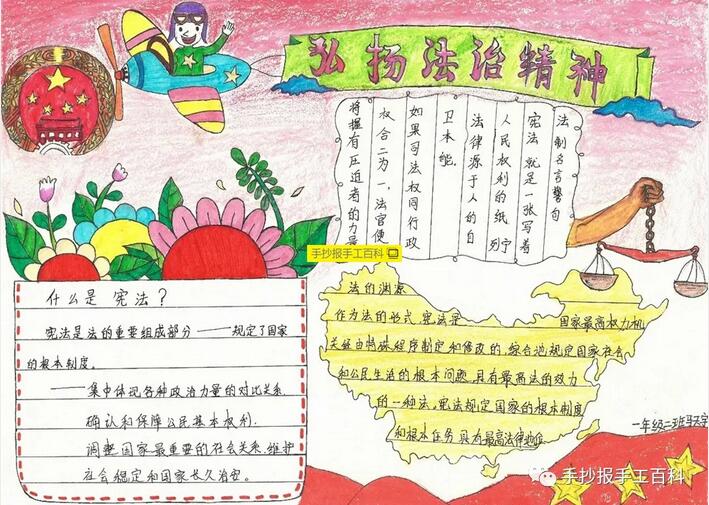 弘扬法治精神
法制名言警句
宪法就是一张写着
人民权利的纸 列宁
法律源于人的自
卫本能.
如果司法权同行政
权合二为一,法官便
将握有压迫者的力量
手抄报手工百科
什么是宪法?
宪法是法的重要组成部分——规定了国家
的根本制度。
——集中体现各种政治力量的对比关系.
确认和保障公民基本权利.
调整国家最重要的社会关系,维护
社会稳定和国家长久治安。
法的渊源
作为法的形式,宪法是 国家最高权力机
关经由特殊程序制定和修改的,综合地规定国家社会
和公民生活的根本问题,具有最高法的效力
的一种法。宪法规定国家的根本制度
和根本任务,具有最高法律地位
一年级二班
手抄报手工百科